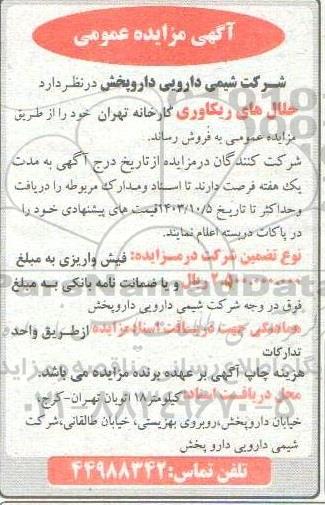 آگهی مزایده عمومی
شرکت شیمی دارویی داروپخش درنظر دارد
حلال های ریکاوری کارخانه تهران خود را از طریق
مزایده عمومی به فروش رساند.
شرکت کنندگان در مزایده از تاریخ درج آگهی به مدت
یک هفته فرصت دارند تا اسناد ومدارک مربوطه را دریافت
وحداکثر تا تاریخ ۱۴۰۳/۱۰/۵قیمت های پیشنهادی خود را
در پاکات دربسته اعلام نمایند.
نوع تضمین شرکت درمزایده: فیش واریزی به مبلغ
ریال و یا ضمانت نامه بانکی به مبلغ
فوق در وجه شرکت شیمی دارویی داروپخش
هماهنگی جهت دریافت اسنادمزایده ازطریق واحد
تدارکات
هزینه چاپ آگهی بر عهده برنده مزایده می باشد.
محل دریافت اسناد: کیلومتر۱۸ اتوبان تهران-کرج،
خیابان داروپخش،روبروی بهزیستی، خیابان طالقانی،شرکت
شیمی دارویی دارو پخش
تلفن تماس:۴۴۹۸۸۳۴۲